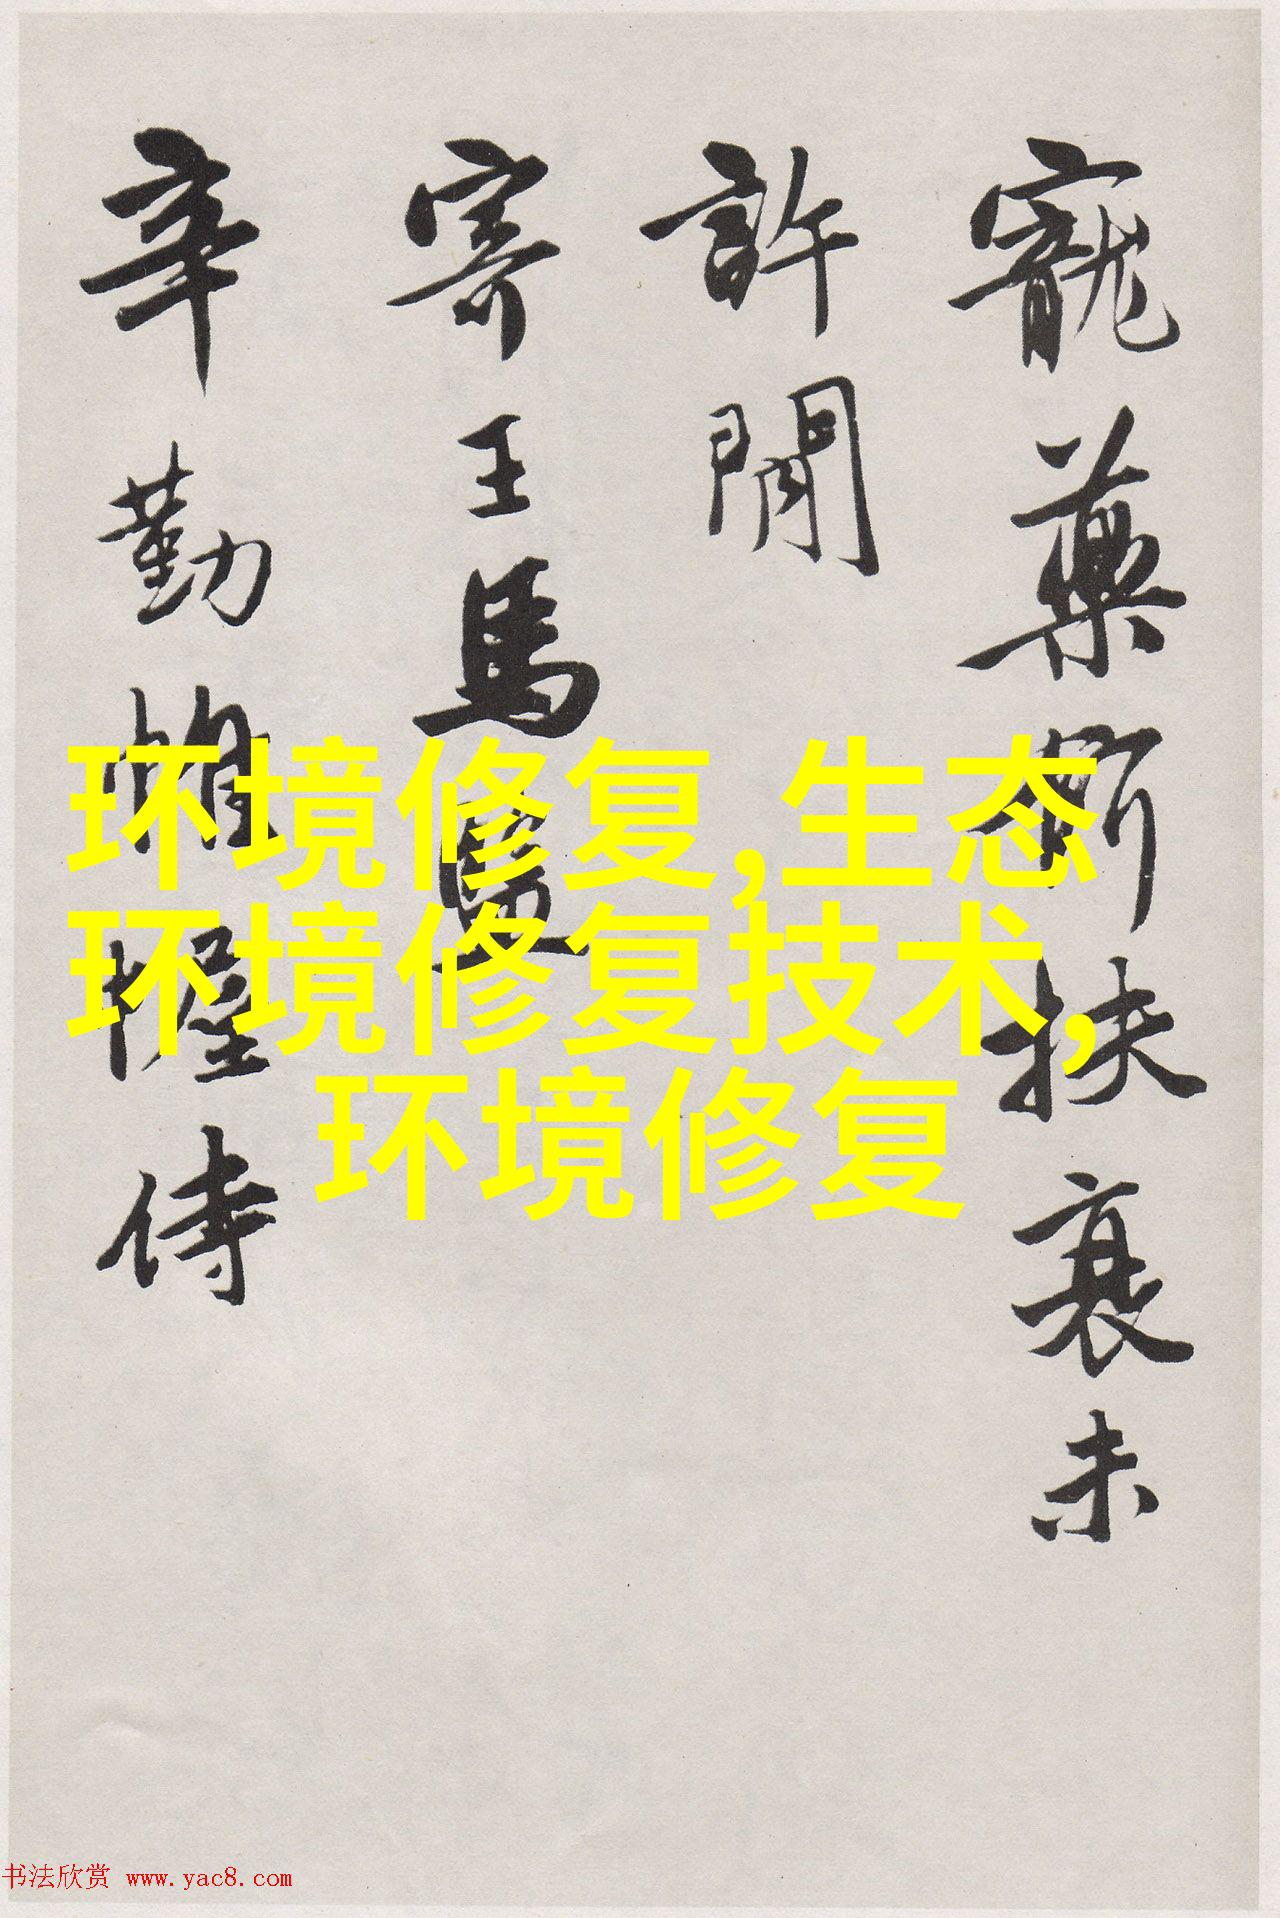 寵藥斯扶衰未
許閒
寄王馬
辛勤帷幄侍
环境修复,生态
环境修复技术,
环境修复
书法欣赏 www.yac8.com